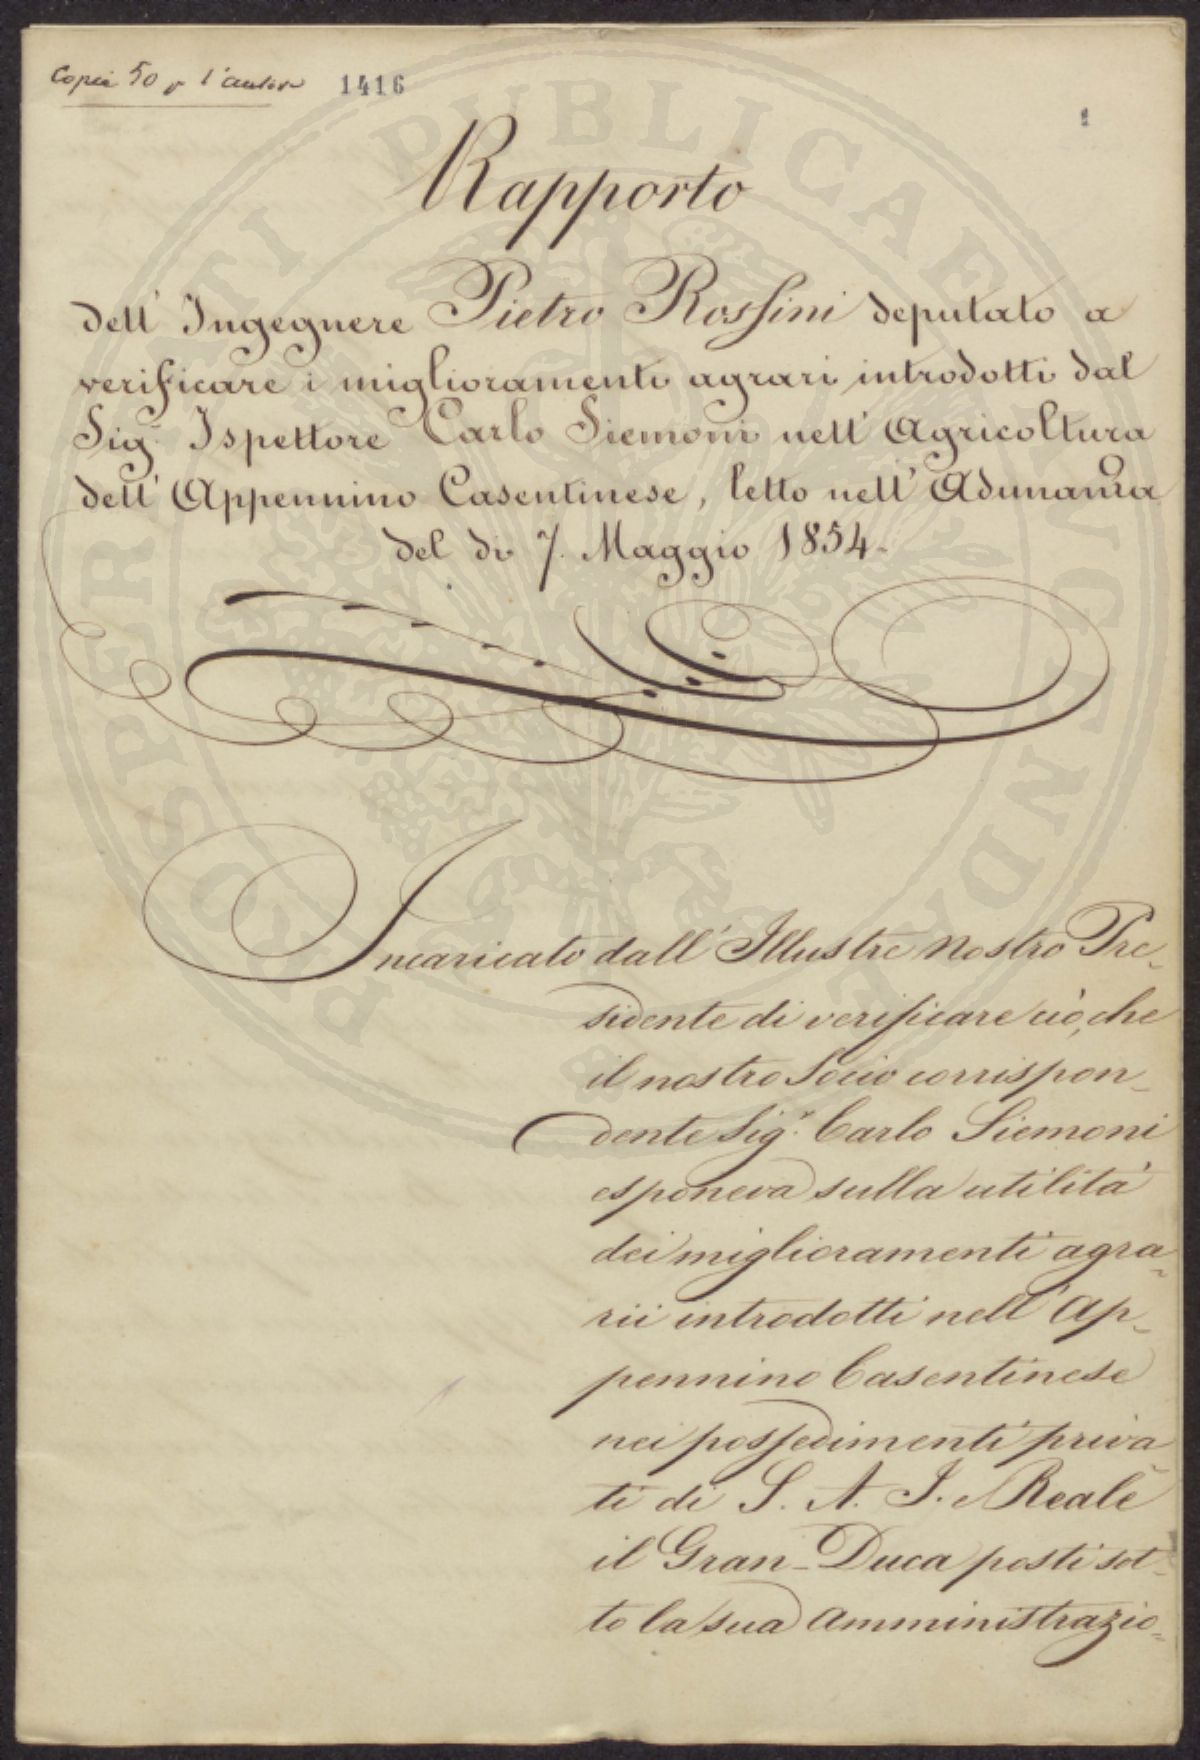 Copie 50 p l'autore 1416
1
Rapporto
dell' Ingegnere Pietro Rossini deputato a
verificare i miglioramenti agrari introdotti dal
Sig.r Ispettore Carlo Siemoni nell' Agricoltura
dell' Appennino Casentinese, letto nell' Adunanza
del dì 7. Maggio 1854.
Incaricato dall' Illustre nostro Pre-
sidente di verificare ciò, che
il nostro Socio corrispon-
dente Sig.r Carlo Siemoni
esponeva sulla utilità
dei miglioramenti agra-
rii introdotti nell' Ap-
pennino Casentinese
nei possedimenti priva-
ti di S. A. I. e Reale
il Gran-Duca posti sot-
to la sua amministrazio-
PROSPERITATI PUBLICAE AVGENDAE